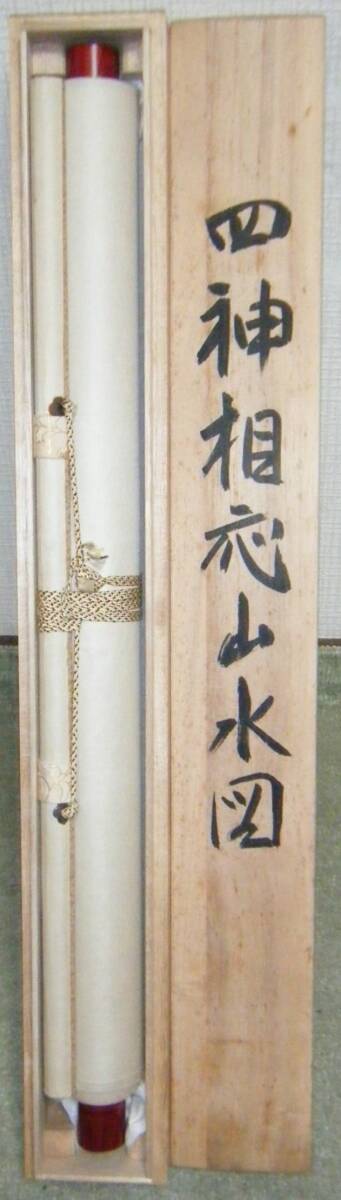 四神相応山水図